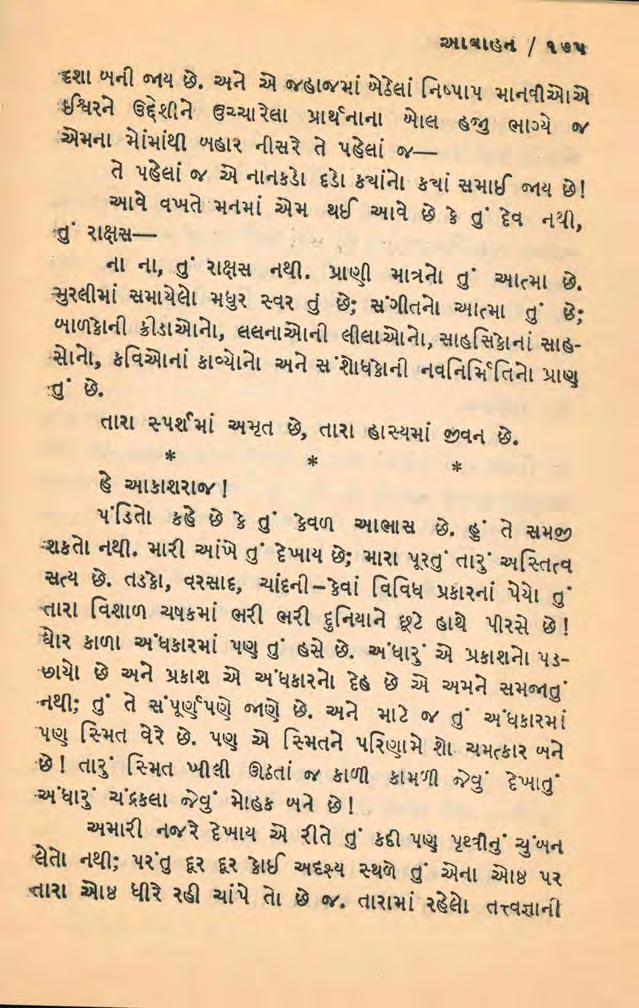 આવાહન / ૧૭૫
દશા બની જાય છે. અને એ જહાજમાં બેઠેલાં નિષ્પાપ માનવીઓએ
ઈશ્વરને ઉદ્દેશીને ઉચ્ચારેલા પ્રાર્થનાના બોલ હજી ભાગ્યે જ
એમના મોંમાંથી બહાર નીસરે તે પહેલાં જ—
તે પહેલાં જ એ નાનકડો દડો ક્યાંનો ક્યાં સમાઈ જાય છે!
આવે વખતે મનમાં એમ થઈ આવે છે કે તું દેવ નથી,
તું રાક્ષસ—
ના ના, તું રાક્ષસ નથી. પ્રાણી માત્રનો તું આત્મા છે.
મુરલીમાં સમાયેલો મધુર સ્વર તું છે; સંગીતનો આત્મા તું છે;
બાળકોની ક્રીડાઓનો, લલનાઓની લીલાઓનો, સાહસિકોનાં સાહ-
સોનો, કવિઓનાં કાવ્યોનો અને સંશોધકોની નવનિર્મિતિનો પ્રાણ
તું છે.
તારા સ્પર્શમાં અમૃત છે, તારા હાસ્યમાં જીવન છે.
* * *
હે આકાશરાજ!
પંડિતો કહે છે કે તું કેવળ આભાસ છે. હું તે સમજી
શકતો નથી. મારી આંખે તું દેખાય છે; મારા પૂરતું તારું અસ્તિત્વ
સત્ય છે. તડકો, વરસાદ, ચાંદની–કેવાં વિવિધ પ્રકારનાં પેયો તું
તારા વિશાળ ચષકમાં ભરી ભરી દુનિયાને છૂટે હાથે પીરસે છે!
ઘોર કાળા અંધકારમાં પણ તું હસે છે. અંધારું એ પ્રકાશનો પડ-
છાયો છે અને પ્રકાશ એ અંધકારનો દેહ છે એ અમને સમજાતું
નથી; તું તે સંપૂર્ણપણે જાણે છે. અને માટે જ તું અંધકારમાં
પણ સ્મિત વેરે છે. પણ એ સ્મિતને પરિણામે શો ચમત્કાર બને
છે! તારું સ્મિત ખીલી ઊઠતાં જ કાળી કામળી જેવું દેખાતું
અંધારું ચંદ્રકલા જેવું મોહક બને છે!
અમારી નજરે દેખાય એ રીતે તું કદી પણ પૃથ્વીનું ચુંબન
લેતો નથી; પરંતુ દૂર દૂર કોઈ અદૃશ્ય સ્થળે તું એના ઓષ્ઠ પર
તારા ઓષ્ઠ ધીરે રહી ચાંપે તો છે જ. તારામાં રહેલો તત્ત્વજ્ઞાની